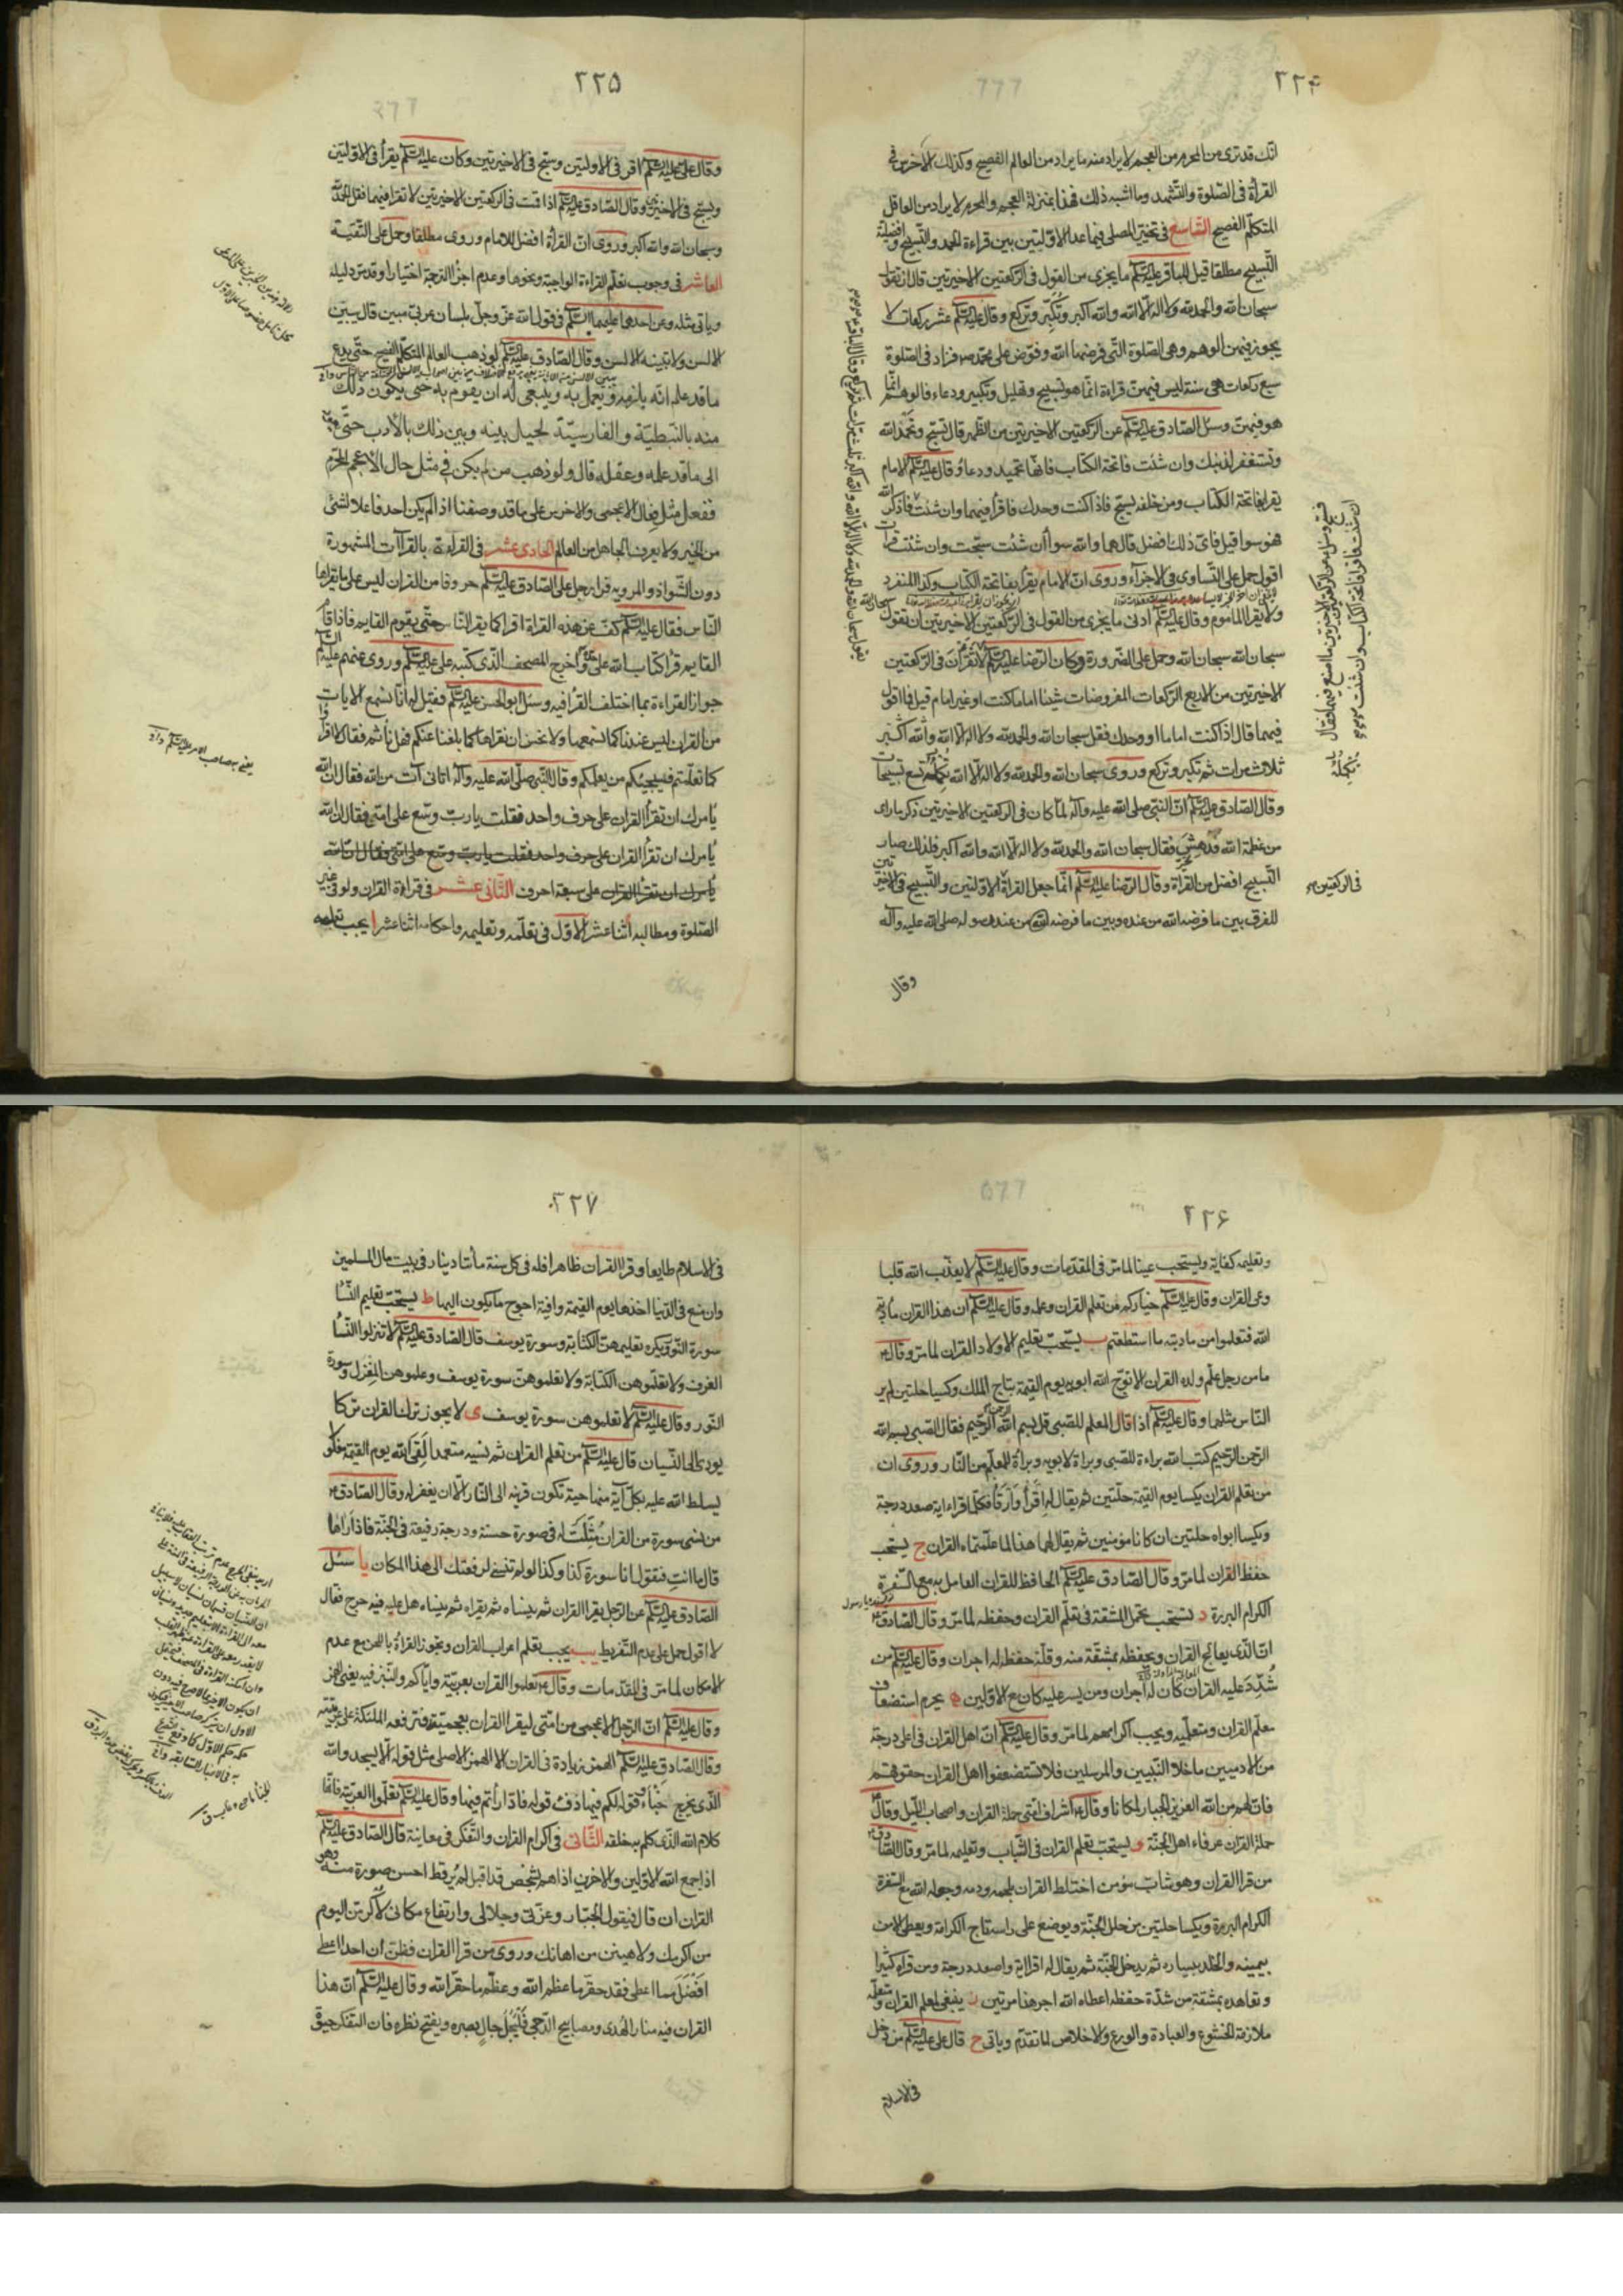 ٢٢۴
انك قد ترى من المحرم من العجم لا يراد منه ما يراد من العالم الفصيح وكذلك الاخرس فى
القرأة فى الصلوة والتشهد وما اشبه ذلك فهذا بمنزلة العجم والمحرم لا يراد من العاقل
المتكلم الفصيح التاسع فى تخيير المصلى فيما عدا الاولتين بين قراءة الحمد والتسبيح وافضلية
التسبيح مطلقا قيل للباقر عليه السلم ما يجزى من القول فى الركعتين الاخيرتين قال ان تقول
سبحان الله والحمد لله ولا اله الا الله والله اكبر وتكبّر وتركع وقال عليه السلم عشر ركعات لا
يجوز فيهن الوهم وهى الصلوة التى فرضها الله وفوّض على محمد ص فزاد فى الصلوة
سبع ركعات هى سنة ليس فيهن قراءة انما هو تسبيح وتهليل وتكبير ودعاء فالوهم انما
هو فيهن وسئل الصادق عليه السلم عن الركعتين الاخيرتين من الظهر قال تسبح وتحمد الله
وتستغفر لذنبك وان شئت فاتحة الكتاب فانها تحميد ودعاء وقال عليه السلم الامام
يقرا بفاتحة الكتاب ومن خلفه يسبح فاذا كنت وحدك فاقرأ فيهما وان شئت فاذكر الله
فهو سوا قيل فاى ذلك افضل قال هما والله سوا ان شئت سبّحت وان شئت قرات
اقول حمل على التساوى فى الاجزاء وروى ان الامام يقرأ بفاتحة الكتاب وكذا المنفرد
ولا يقرا الماموم وقال عليه السلم ادنى ما يجزى من القول فى الركعتين الاخيرتين ان تقول سبحان الله
سبحان الله سبحان الله وحمل على الضرورة وكان الرضا عليه السلم لا تقرأن فى الركعتين
الاخيرتين من الاربع الركعات المفروضات شيئا اماما كنت او غير امام قيل فما اقول
فيهما قال اذا كنت اماما او وحدك فقل سبحان الله والحمد لله ولا اله الا الله والله اكبر
ثلاث مرات ثم تكبر وتركع وروى سبحان الله والحمد لله ولا اله الا الله تكمله تسع تسبيحات
وقال الصادق عليه السلم ان النبى صلى الله عليه وآله لما كان فى الركعتين الاخيرتين ذكر ما راى
من عظمة الله فدهش فقال سبحان الله والحمد لله ولا اله الا الله والله اكبر فلذلك صار
التسبيح افضل من القرأة وقال الرضا عليه السلم انما جعل القرأة الاولتين والتسبيح فى الاخيرتين
للفرق بين ما فرضه الله من عنده وبين ما فرضه الله من عند رسوله صلى الله عليه وآله
فى الركعتين
وقال
٢٢۵
وقال على عليه السلم اقر فى الاولتين وسبح فى الاخيرتين وكان عليه السلم يقرأ فى الاولتين
ويسبح فى الاخيرتين وقال الصادق عليه السلم اذا قمت فى الركعتين الاخيرتين لا تقرا فيهما فقل الحمد لله
وسبحان الله والله اكبر وروى ان القرأة افضل للامام وروى مطلقا وحمل على التقية
العاشر فى وجوب تعلم القراءة الواجبة ونحوها وعدم اجزاء الترجمة اختيارا وقد مر دليله
وياتى مثله وعن احدهما عليهما السلم فى قول الله عز وجل بلسان عربى مبين قال يبين
الالسن ولا تبينه الالسن وقال الصادق عليه السلم لو ذهب العالم المتكلم الفصيح حتى يدع
ما قد علم انه يلزمه ويعمل به وينبغى له ان يقوم به حتى يكون ذلك
منه بالنبطية والفارسية لحيل بينه وبين ذلك بالأدب حتى يعود
الى ما قد علمه وعقله قال ولو ذهب من لم يكن فى مثل حال الاعجم المحرم
ففعل مثل فعال الاعجمى والاخرس على ما قد وصفنا اذا لم يكن احد فاعلا لشئ
من الخير ولا يعرف الجاهل من العالم الحادى عشر فى القراءة بالقرآات المشهورة
دون الشواذ والمرويه قرا رجل على الصادق عليه السلم حروفا من القران ليس على ما يقراها
الناس فقال عليه السلم كف عن هذه القراة اقرا كما يقرا الناس حتى يقوم القايم فاذا قام
القايم قرأ كتاب الله على حدّه واخرج المصحف الذى كتبه على عليه السلم وروى عنهم عليهم السلم
جواز القراءة بما اختلف القرا فيه وسئل ابو الحسن عليه السلم فقيل له انا نسمع الايات
من القران ليس عندنا كما نسمعها ولا نحسن ان نقراها كما بلغنا عنكم فهل ناثم فقال لا اقرأوا
كما تعلمتم فسيجيئكم من يعلمكم وقال النبى صلى الله عليه وآله اتانى آت من الله فقال ان الله
يأمرك ان تقرأ القران على حرف واحد فقلت يا رب وسّع على امتى فقال ان الله
يأمرك ان تقرأ القران على حرف واحد فقلت يا رب وسع على امتى فقال ان الله
يأمرك ان تقرأ القران على سبعة احرف الثانى عشر فى قراءة القران ولو فى غير
الصلوة ومطالبه اثنا عشر الاول فى تعلمه وتعليمه واحكامه اثنا عشر ا يجب تعلمه
يعنى به صاحب الامر عليه السلم
٢٢۶
وتعليمه كفاية ويستحب عينا لما مر فى المقدمات وقال عليه السلم لا يعذب الله قلبا
وعى القران وقال عليه السلم خياركم من تعلم القران وعلمه وقال عليه السلم ان هذا القران مأدبة
الله فتعلموا من مادبته ما استطعتم ب يستحب تعليم الاولاد القران لما مر وقال ع
ما من رجل علّم ولده القران الا توّج الله ابويه يوم القيمة بتاج الملك وكسيا حلتين لم ير
الناس مثلهما وقال عليه السلم اذا قال المعلم للصبى قل بسم الله الرحمن الرحيم فقال الصبى بسم الله
الرحمن الرحيم كتب الله براءة للصبى وبراة لابويه وبراة للمعلم من النار وروى ان
من تعلم القران يكسا يوم القيمة حلتين ثم يقال له اقرأ وارقا فكلما قرا اية صعد درجة
ويكسا ابواه حلتين ان كانا مؤمنين ثم يقال لهما هذا لما علمتماه القران ج يستحب
حفظ القران لما مر وقال الصادق عليه السلم الحافظ للقران العامل به مع السفرة
الكرام البررة د يستحب تحمل المشقة فى تعلم القران وحفظه لما مر وقال الصادق ع
ان الذى يعالج القران ويحفظه بمشقة منه وقلة حفظه له اجران وقال عليه السلم من
شُدّد عليه القران كان له اجران ومن يسر عليه كان مع الاولين ه يحرم استضعاف
معلّم القران ومتعلّميه ويجب اكرامهم لما مر وقال عليه السلم ان اهل القران فى اعلى درجة
من الادميين ما خلا النبيين والمرسلين فلا تستضعفوا اهل القران حقوقهم
فان لهم من الله العزيز الجبار لمكانا وقال ع اشراف امتى حملة القران واصحاب الليل وقال ع
حملة القران عرفاء اهل الجنة و يستحب تعلم القران فى الشباب وتعليمه لما مر وقال الصادق ع
من قرا القران وهو شاب مؤمن اختلط القران بلحمه ودمه وجعله الله مع السفرة
الكرام البررة ويكسا حلتين من حلل الجنة ويوضع على راسه تاج الكرامة ويعطى الامن
بيمينه والخلد بيساره ثم يدخل الجنة ثم يقال له اقرا اية واصعد درجة ومن قراه كثيرا
وتعاهده بمشقة من شدة حفظه اعطاه الله اجر هذا مرتين ز ينبغى لمعلم القران ومتعلمه
ملازمة الخشوع والعبادة والورع والاخلاص لما تقدم وياتى ح قال على عليه السلم من دخل
فى الاسلام
٢٢٧
فى الاسلام طايعا وقرا القران ظاهرا فله فى كل سنة مأتا دينار فى بيت مال المسلمين
وان منع فى الدنيا اخذها يوم القيمة وافية احوج ما يكون اليها ط يستحب تعليم النسا
سورة النور ويكره تعليمهن الكتابة وسورة يوسف قال الصادق عليه السلم لا تنزلوا النسا
الغرف ولا تعلموهن الكتابة ولا تعلموهن سورة يوسف وعلموهن المغزل وسورة
النور وقال عليه السلم لا تعلموهن سورة يوسف ى لا يجوز ترك القران تركا
يودى الى النسيان قال عليه السلم من تعلم القران ثم نسيه متعمدا لقى الله يوم القيمة مغلولا
يسلط الله عليه بكل آية منها حية تكون قرينه الى النار الا ان يغفر له وقال الصادق ع
من نسى سورة من القران مُثّلت له فى صورة حسنة ودرجة رفيعة فى الجنة فاذا راها
قال ما انت فتقول انا سورة كذا وكذا لو لم تنسنى لرفعتك الى هذا المكان يا سئل
الصادق عليه السلم عن الرجل يقرا القران ثم ينساه ثم يقراه ثم ينساه هل عليه فيه حرج فقال
لا اقول حمل على عدم التفريط يب يجب تعلم اعراب القران وتجوز القراة باللحن مع عدم
الامكان لما مر فى المقدمات وقال ع تعلموا القران بعربيته واياكم والنبز فيه يعنى الهمز
وقال عليه السلم ان الرجل الاعجمى من امتى ليقرا القران بعجميته فترفعه الملئكة على عربيته
وقال الصادق عليه السلم الهمز زيادة فى القران الا الهمز الاصلى مثل قوله الا يسجدوا لله
الذى يخرج الخبأ وقوله لكم فيها دفء وقوله فادّارأتم فيها وقال عليه السلم تعلموا العربية فانها
كلام الله الذى كلم به خلقه الثانى فى اكرام القران والتفكر فى معانيه قال الصادق عليه السلم
اذا جمع الله الاولين والاخرين اذا هم بشخص قد اقبل لم ير قط احسن صورة منه وهو
القران ان قال فيقول الجبار وعزتى وجلالى وارتفاع مكانى لاكرمن اليوم
من اكرمك ولاهينن من اهانك وروى من قرا القران فظن ان احدا اعطى
افضل مما اعطى فقد حقر ما عظم الله وعظم ما حقر الله وقال عليه السلم ان هذا
القران فيه منار الهدى ومصابيح الدجى فليجل جال بصره ويفتح نظره فان التفكر حيوة